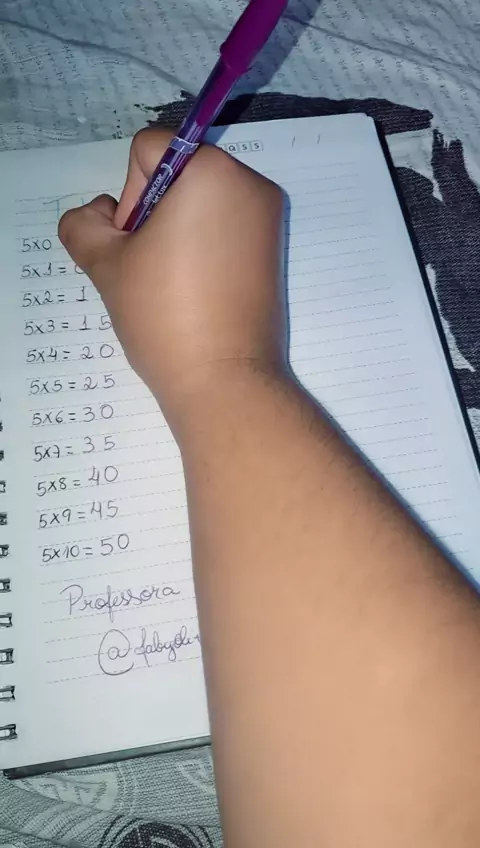 ass / /
5x0
5x1 = 0
5x2 = 1
5x3 = 15
5x4 = 20
5x5 = 25
5x6 = 30
5x7 = 35
5x8 = 40
5x9 = 45
5x10 = 50
Professora
COMPACTOR